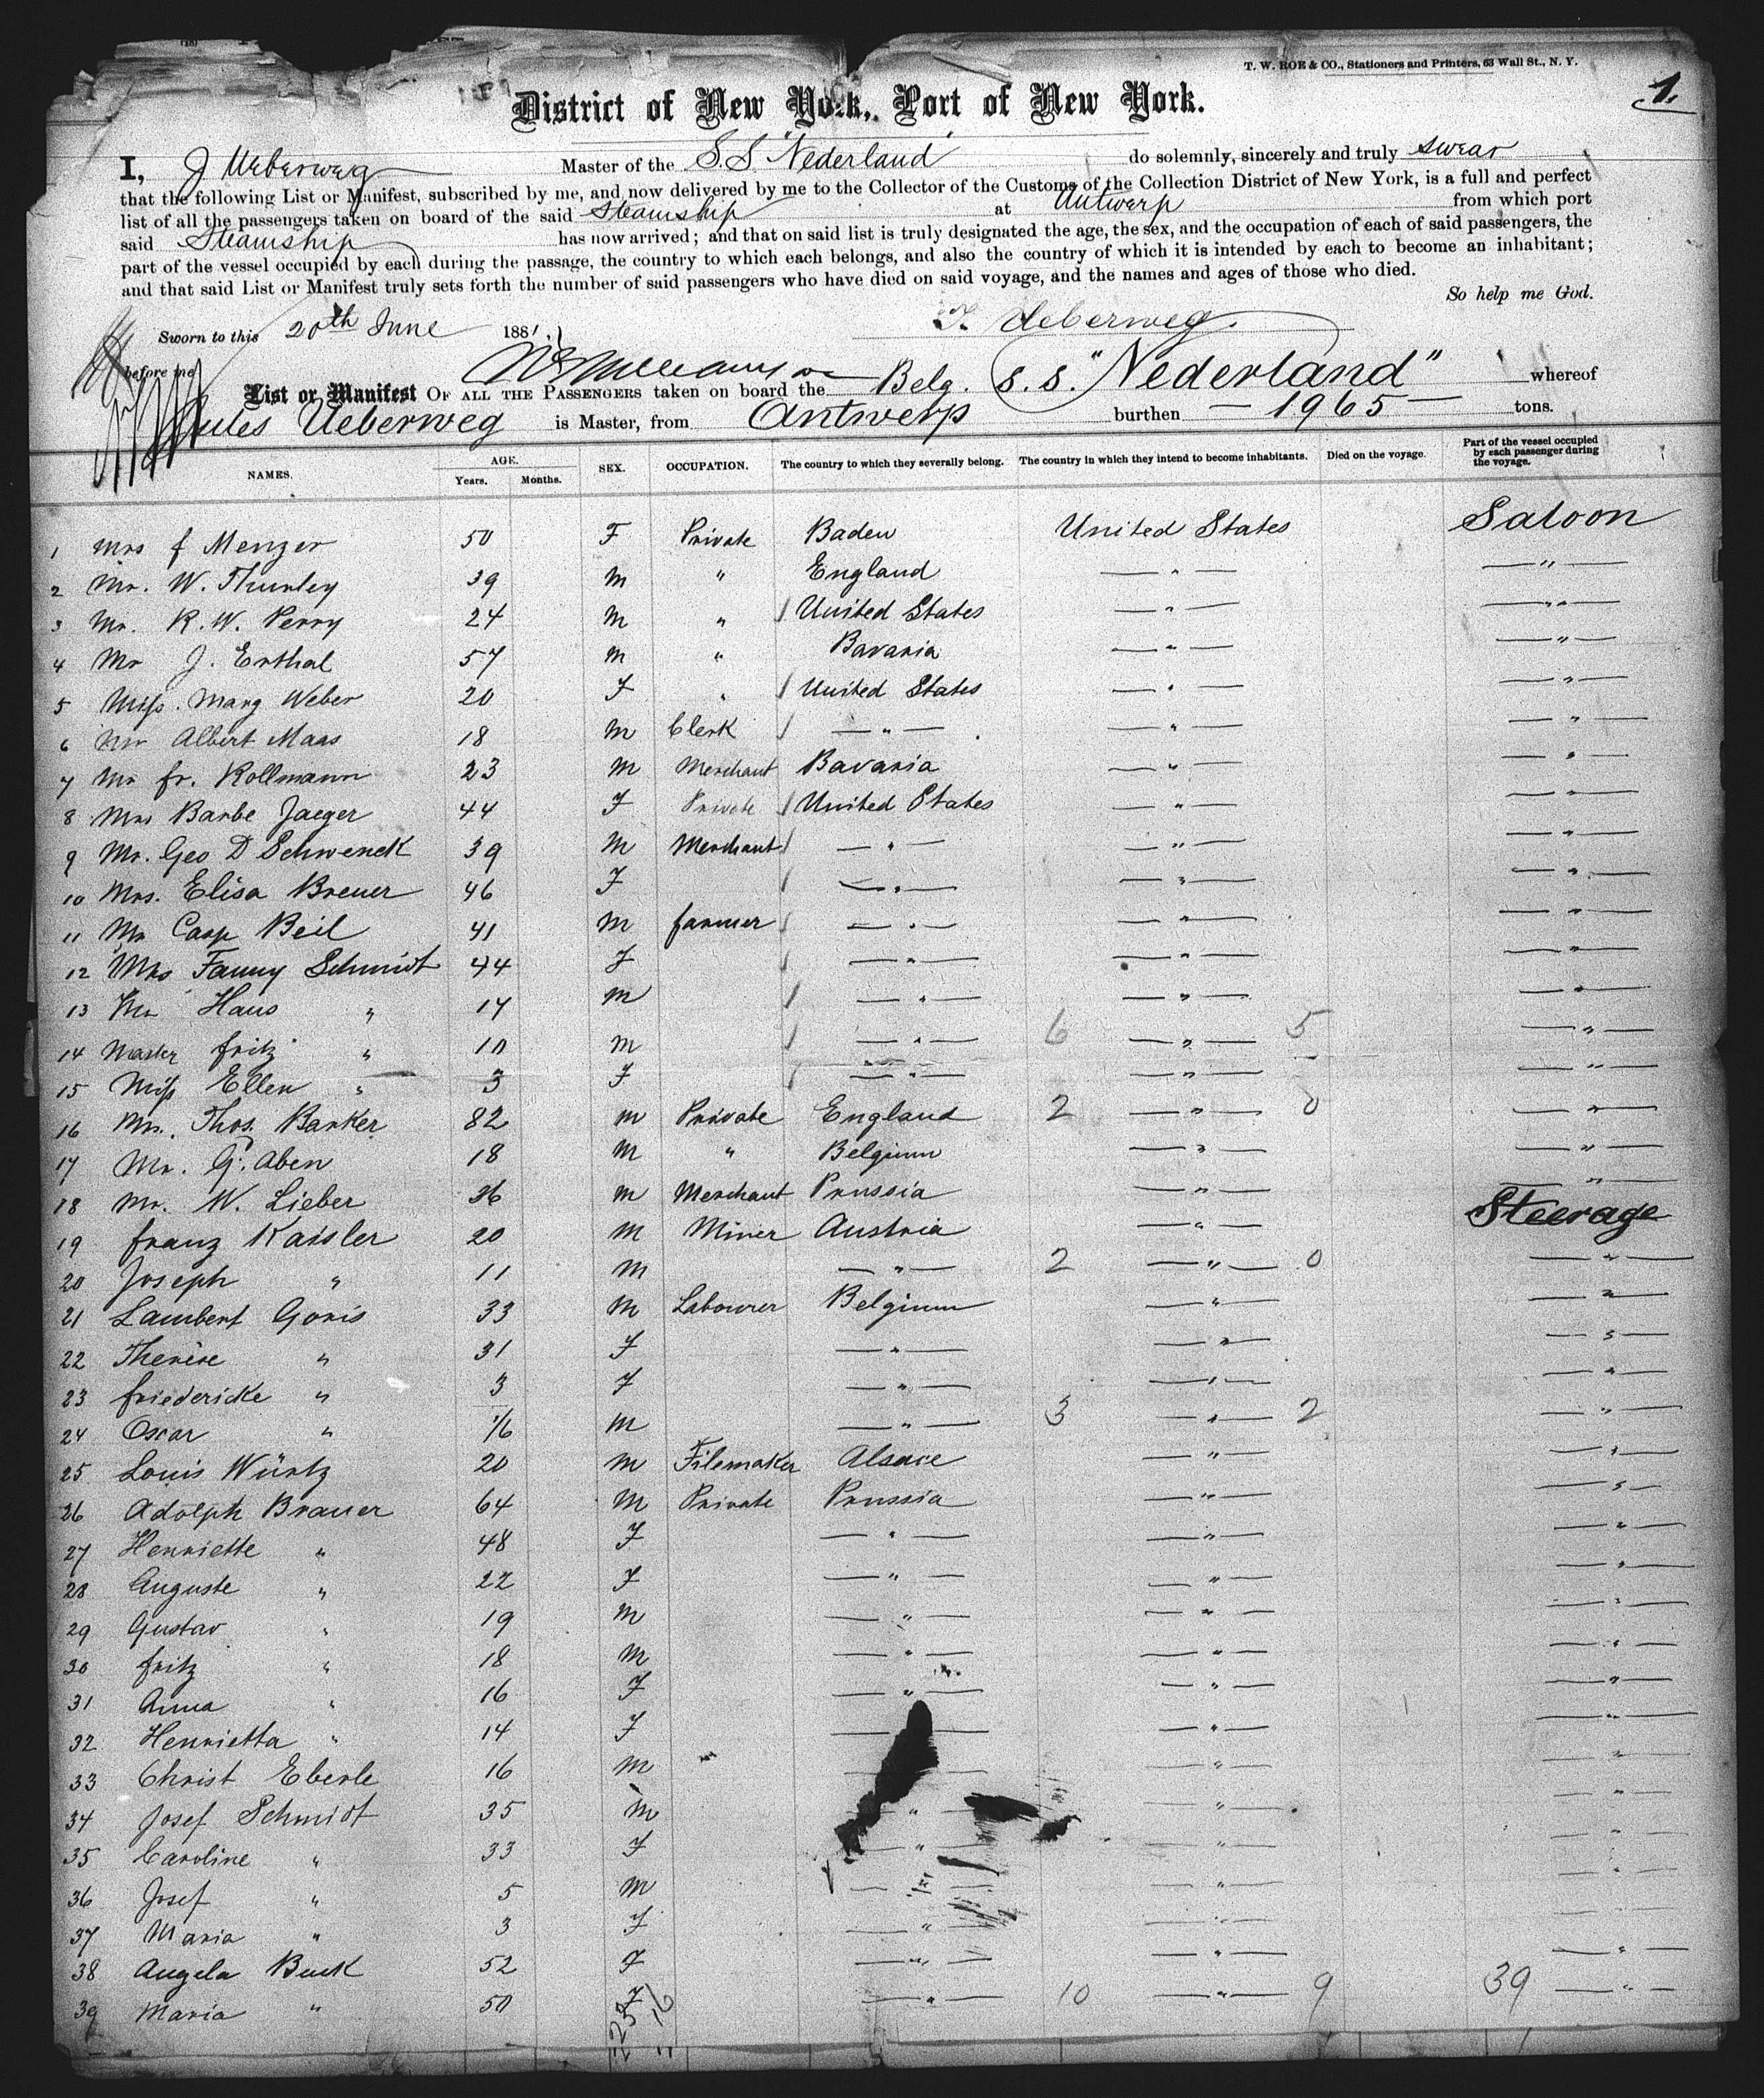 T. W. ROE & CO., Stationers and Printers, 63 Wall St., N. Y.
1.
District of New York, Port of New York.
I, J Ueberweg Master of the S.S "Nederland" do solemnly, sincerely and truly swear
that the following List or Manifest, subscribed by me, and now delivered by me to the Collector of the Customs of the Collection District of New York, is a full and perfect
list of all the passengers taken on board of the said Steamship at Antwerp from which port
said Steamship has now arrived; and that on said list is truly designated the age, the sex, and the occupation of each of said passengers, the
part of the vessel occupied by each during the passage, the country to which each belongs, and also the country of which it is intended by each to become an inhabitant;
and that said List or Manifest truly sets forth the number of said passengers who have died on said voyage, and the names and ages of those who died.
So help me God.
Sworn to this 20th June 1881. J. Ueberweg.
before me
List or Manifest OF ALL THE PASSENGERS taken on board the Belg. S.S. "Nederland" whereof
Jules Ueberweg is Master, from Antwerp burthen — 1965 — tons.
NAMES. AGE. Years. Months. SEX. OCCUPATION. The country to which they severally belong. The country in which they intend to become inhabitants. Died on the voyage. Part of the vessel occupied by each passenger during the voyage.
1 Mrs f Menzer 50 F Private Baden United States Saloon
2 Mr. W. Thurley 39 M " England — " — — " —
3 Mr. R. W. Perry 24 M " / United States — " — — " —
4 Mr J. Erthal 57 M " Bavaria — " — — " —
5 Miss. Marg Weber 20 F " / United States — " — — " —
6 Mr Albert Maas 18 M Clerk / — " — — " — — " —
7 Mr fr. Kollmann 23 M Merchant Bavaria — " — — " —
8 Mrs Barbe Jaeger 44 F Private / United States — " — — " —
9 Mr. Geo D Schwenck 39 M Merchant / — " — — " — — " —
10 Mrs. Elisa Breuer 46 F / — " — — " — — " —
11 Mr Casp Beil 41 M farmer / — " — — " — — " —
12 Mrs Fanny Schmidt 44 F / — " — — " — — " —
13 Mr Hans " 17 M / — " — — " — — " —
14 Master fritz " 10 M / — " — 6 — " — 5 — " —
15 Miss Ellen " 3 F / — " — — " — — " —
16 Mr. Thos. Barker 82 M Private England 2 — " — 0 — " —
17 Mr. G. Aben 18 M " Belgium — " — — " —
18 Mr. W. Lieber 36 M Merchant Prussia — " — — " —
19 franz Kaisler 20 M Miner Austria — " — Steerage
20 Joseph " 11 M — " — 2 — " — 0 — " —
21 Lambert Goris 33 M Labourer Belgium — " — — " —
22 Therèse " 31 F — " — — " — — " —
23 friedericke " 3 F — " — — " — — " —
24 Oscar " 1/6 M — " — 3 — " — 2 — " —
25 Louis Würtz 20 M Filemaker Alsace — " — — " —
26 Adolph Brauer 64 M Private Prussia — " — — " —
27 Henriette " 48 F — " — — " — — " —
28 Auguste " 22 F — " — — " — — " —
29 Gustav " 19 M — " — — " — — " —
30 fritz " 18 M — " — — " — — " —
31 Anna " 16 F — " — — " — — " —
32 Henrietta " 14 F — " — — " — — " —
33 Christ Eberle 16 M — " — — " —
34 Josef Schmidt 35 M — " — — " — — " —
35 Caroline " 33 F — " — — " — — " —
36 Josef " 5 M — " — — " — — " —
37 Maria " 3 F — " — — " — — " —
38 Angela Buck 52 F — " — — " — — " —
39 Maria " 50 F — " — 10 — " — 9 39 — " —
23 16